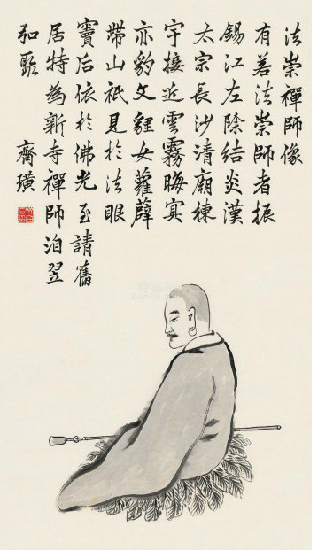 法崇禪師像
有若法崇師者振
錫江左除結炎漢
太宗長沙清廟棟
宇接近雲霧晦冥
亦豹文貍女蘿薜
帶山祇見於法眼
竇后依於佛光至請舊
居特為新寺禪師洎翌
齊璜